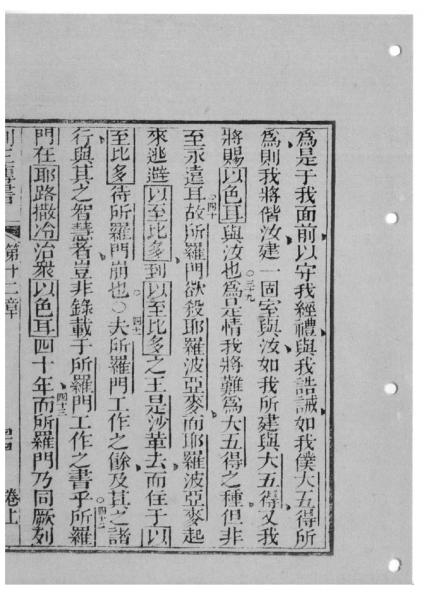 為是于我面前以守我經禮與我誥誡如我僕大五得所
為則我將偕汝建一固室與汝如我所建與大五得又我
將賜以色耳與汝也○三十九為是情我將難為大五得之種但非
至永遠耳○四十故所羅門欲殺耶羅波亞麥而耶羅波亞麥起
來逃避以至比多到以至比多之王是沙革去而住于以
至比多待所羅門崩也○四一夫所羅門工作之餘及其之諸
行與其之智慧者豈非錄載于所羅門工作之書乎○四十二所羅
門在耶路撒冶治眾以色耳四十年四十三而所羅門乃同厥列
列王傳書 第十二章 卷上